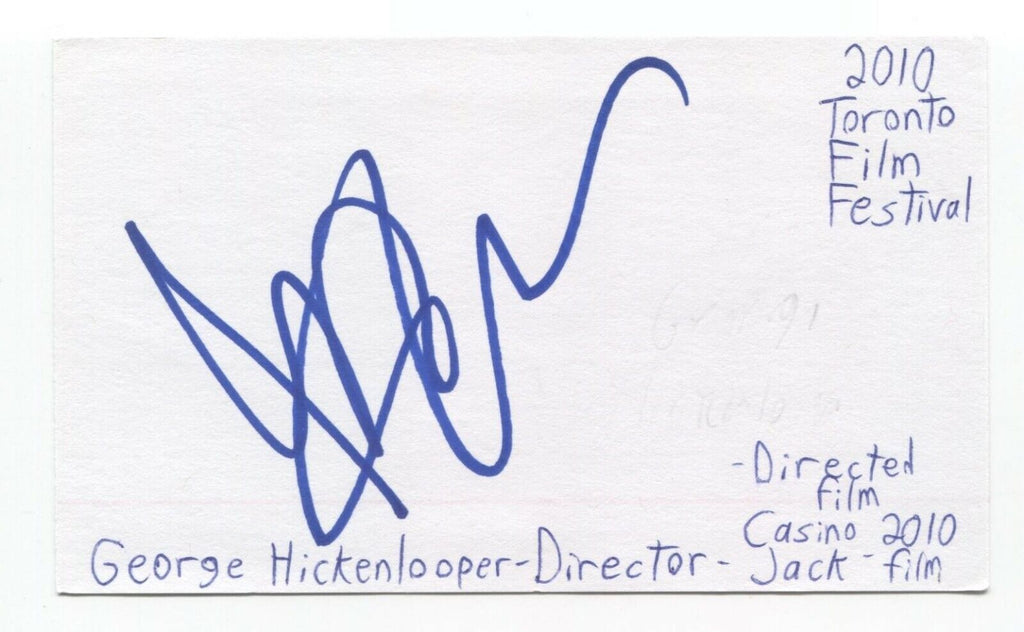 2010
Toronto
Film
Festival
-Directed
film
Casino 2010
George Hickenlooper-Director- Jack - film